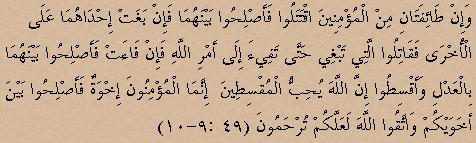 وَإِنْ طَائِفَتَانِ مِنْ الْمُؤْمِنِينَ اقْتَتَلُوا فَأَصْلِحُوا بَيْنَهُمَا فَإِنْ بَغَتْ إِحْدَاهُمَا عَلَى
الْأُخْرَى فَقَاتِلُوا الَّتِي تَبْغِي حَتَّى تَفِيءَ إِلَى أَمْرِ اللَّهِ فَإِنْ فَاءَتْ فَأَصْلِحُوا بَيْنَهُمَا
بِالْعَدْلِ وَأَقْسِطُوا إِنَّ اللَّهَ يُحِبُّ الْمُقْسِطِينَ إِنَّمَا الْمُؤْمِنُونَ إِخْوَةٌ فَأَصْلِحُوا بَيْنَ
أَخَوَيْكُمْ وَاتَّقُوا اللَّهَ لَعَلَّكُمْ تُرْحَمُونَ (٤٩ :٩-١٠)